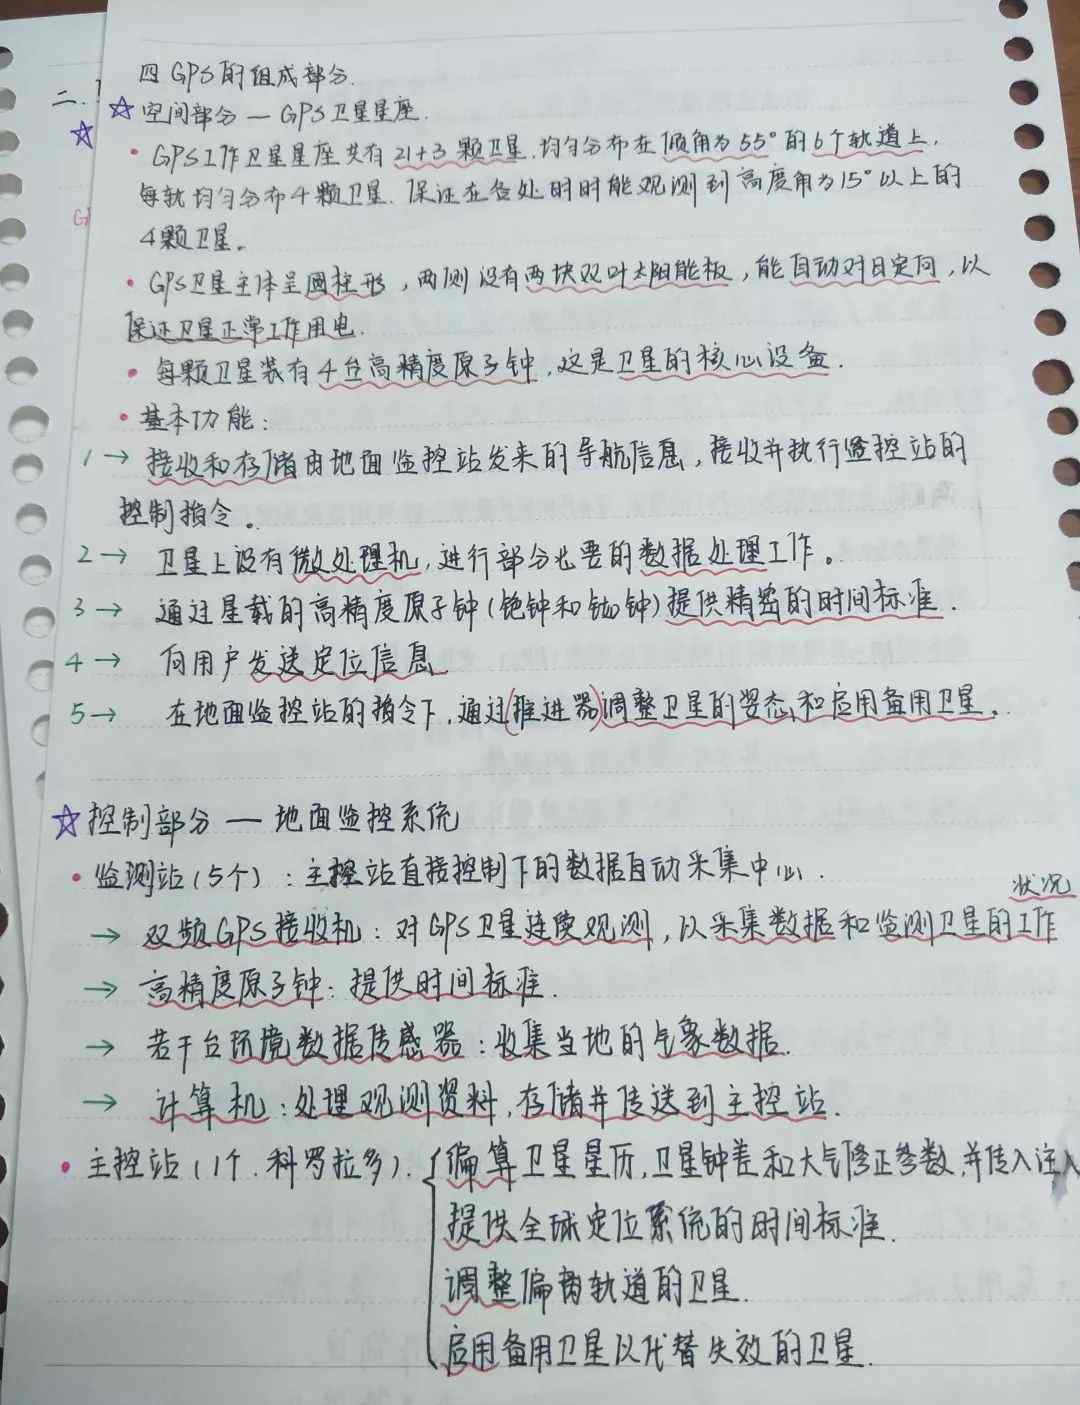 四 GPS的组成部分.
二.
☆ 空间部分 — GPS卫星星座.
☆
• GPS工作卫星星座共有21+3颗卫星.均匀分布在倾角为55°的6个轨道上.
每轨均匀分布4颗卫星.保证在各处时时能观测到高度角为15°以上的
4颗卫星。
• GPS卫星主体呈圆柱形,两侧设有两块双叶太阳能板,能自动对日定向,以
保证卫星正常工作用电.
• 每颗卫星装有4台高精度原子钟,这是卫星的核心设备.
• 基本功能:
1→ 接收和存储由地面监控站发来的导航信息,接收并执行监控站的
控制指令。
2→ 卫星上设有微处理机,进行部分必要的数据处理工作。
3→ 通过星载的高精度原子钟(铯钟和铷钟)提供精密的时间标准.
4→ 向用户发送定位信息
5→ 在地面监控站的指令下,通过(推进器)调整卫星的姿态,和启用备用卫星.
☆ 控制部分 — 地面监控系统
• 监测站(5个):主控站直接控制下的数据自动采集中心.
状况
→ 双频GPS接收机:对GPS卫星连续观测,以采集数据和监测卫星的工作
→ 高精度原子钟:提供时间标准.
→ 若干台环境数据传感器:收集当地的气象数据.
→ 计算机:处理观测资料,存储并传送到主控站.
• 主控站(1个.科罗拉多).{ 偏算卫星星历,卫星钟差和大气修正参数,并传入注入
提供全球定位系统的时间标准.
调整偏离轨道的卫星.
启用备用卫星以代替失效的卫星.